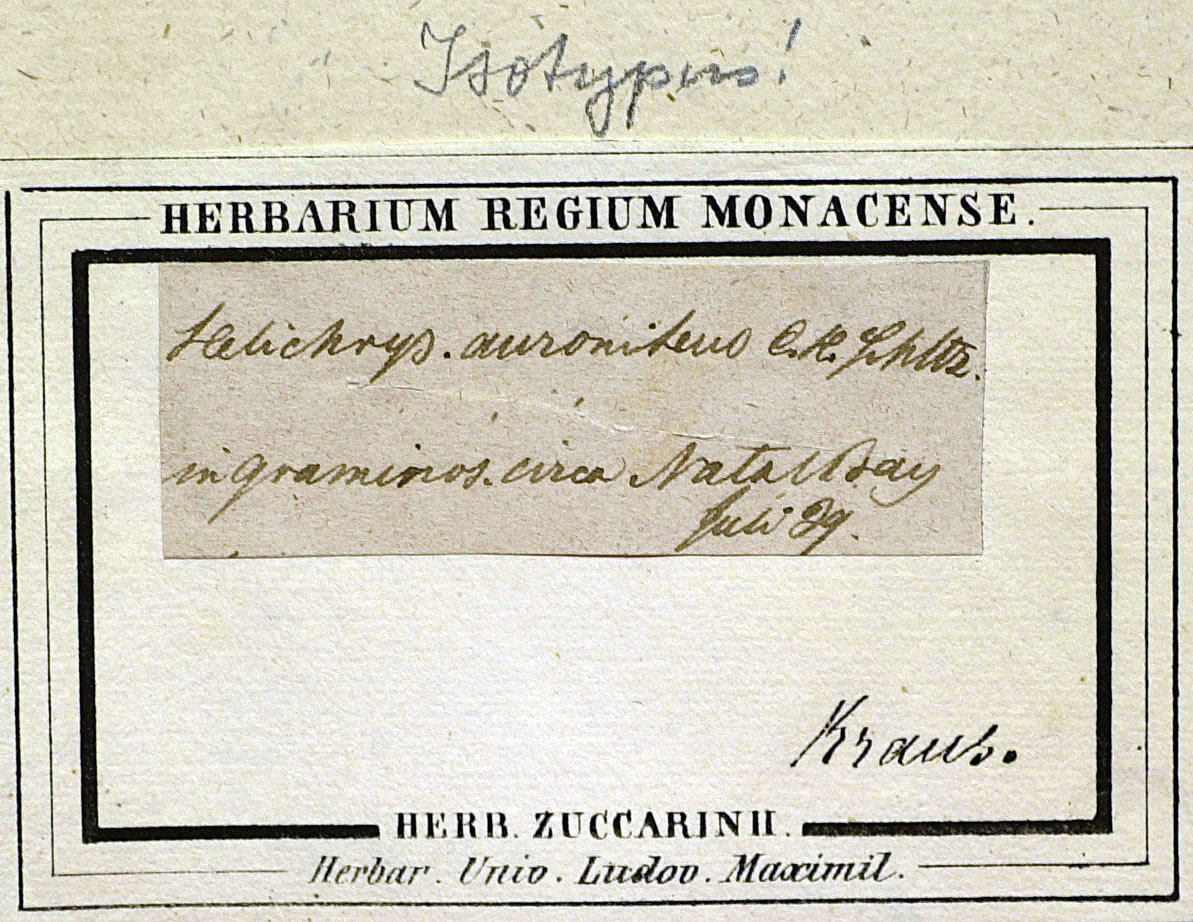 Isotypus!
HERBARIUM REGIUM MONACENSE.
Helichrys. auronitens C.H. Schltz.
in graminos. circa Natal Bay
Juli 39.
Kraus.
HERB. ZUCCARINII.
Herbar. Univ. Ludov. Maximil.